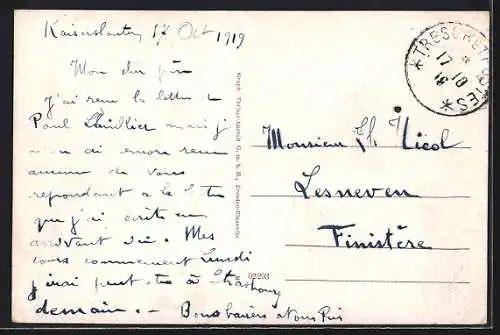 Kaiserslautern 17 Oct 1919
Mon cher père
J'ai reçu la lettre de
Paul mais je
n'en ai encore reçu
aucune de vous
repondant à la lettre
que j'ai écrite en
arrivant ici. Mes
cours commencent lundi
j'irai peut-être à Strasbourg
demain. - Bons baisers à tous
Monsieur Nicol
Lesneven
Finistère
*TRESOR ET POSTES*
17
10
02293